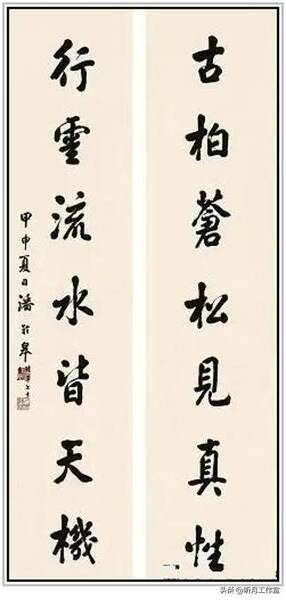 古柏蒼松見真性
行雲流水皆天機
甲申夏日潘齡皋
头条 @听月工作室